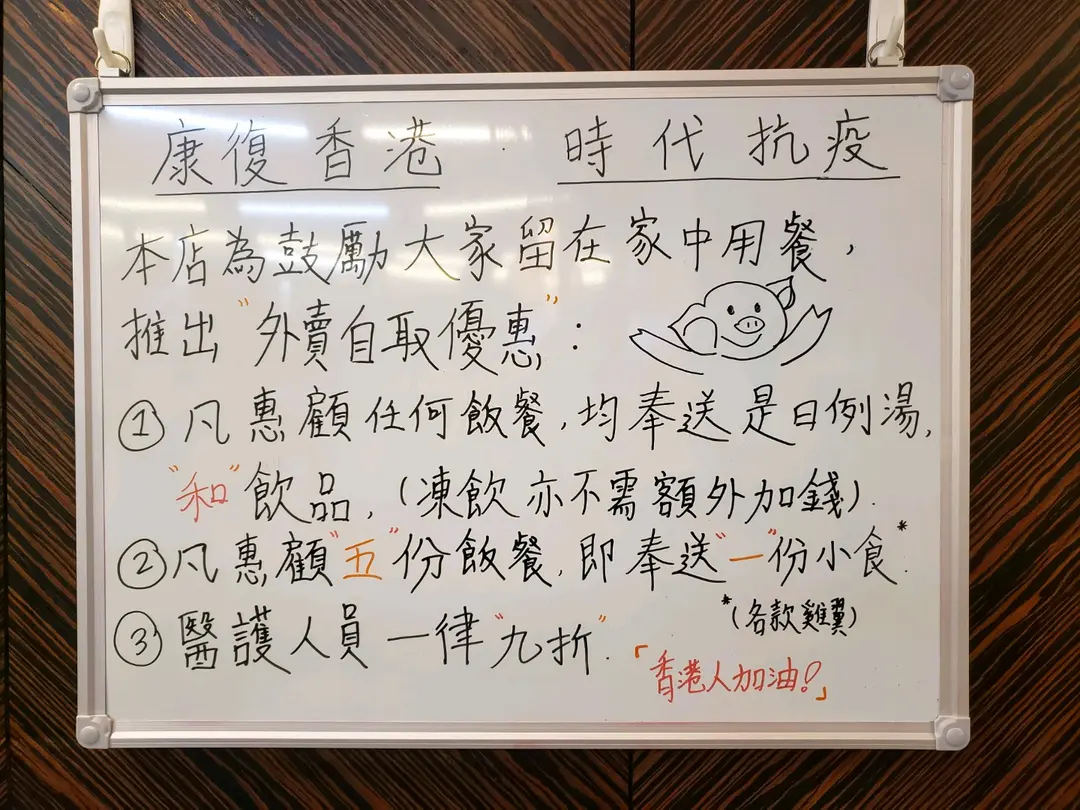 康復香港 · 時代抗疫
本店為鼓勵大家留在家中用餐，
推出"外賣自取優惠"：
① 凡惠顧任何飯餐，均奉送是日例湯，
"和"飲品，(凍飲亦不需額外加錢).
② 凡惠顧"五"份飯餐，即奉送"一"份小食*.
*(各款雞翼)
③ 醫護人員一律"九折".
「香港人加油!」